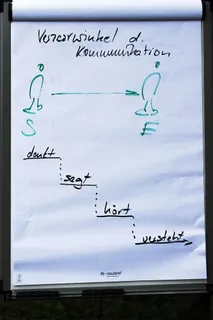 Verzerrwinkel d.
Kommunikation
S E
denkt
sagt
hört
versteht